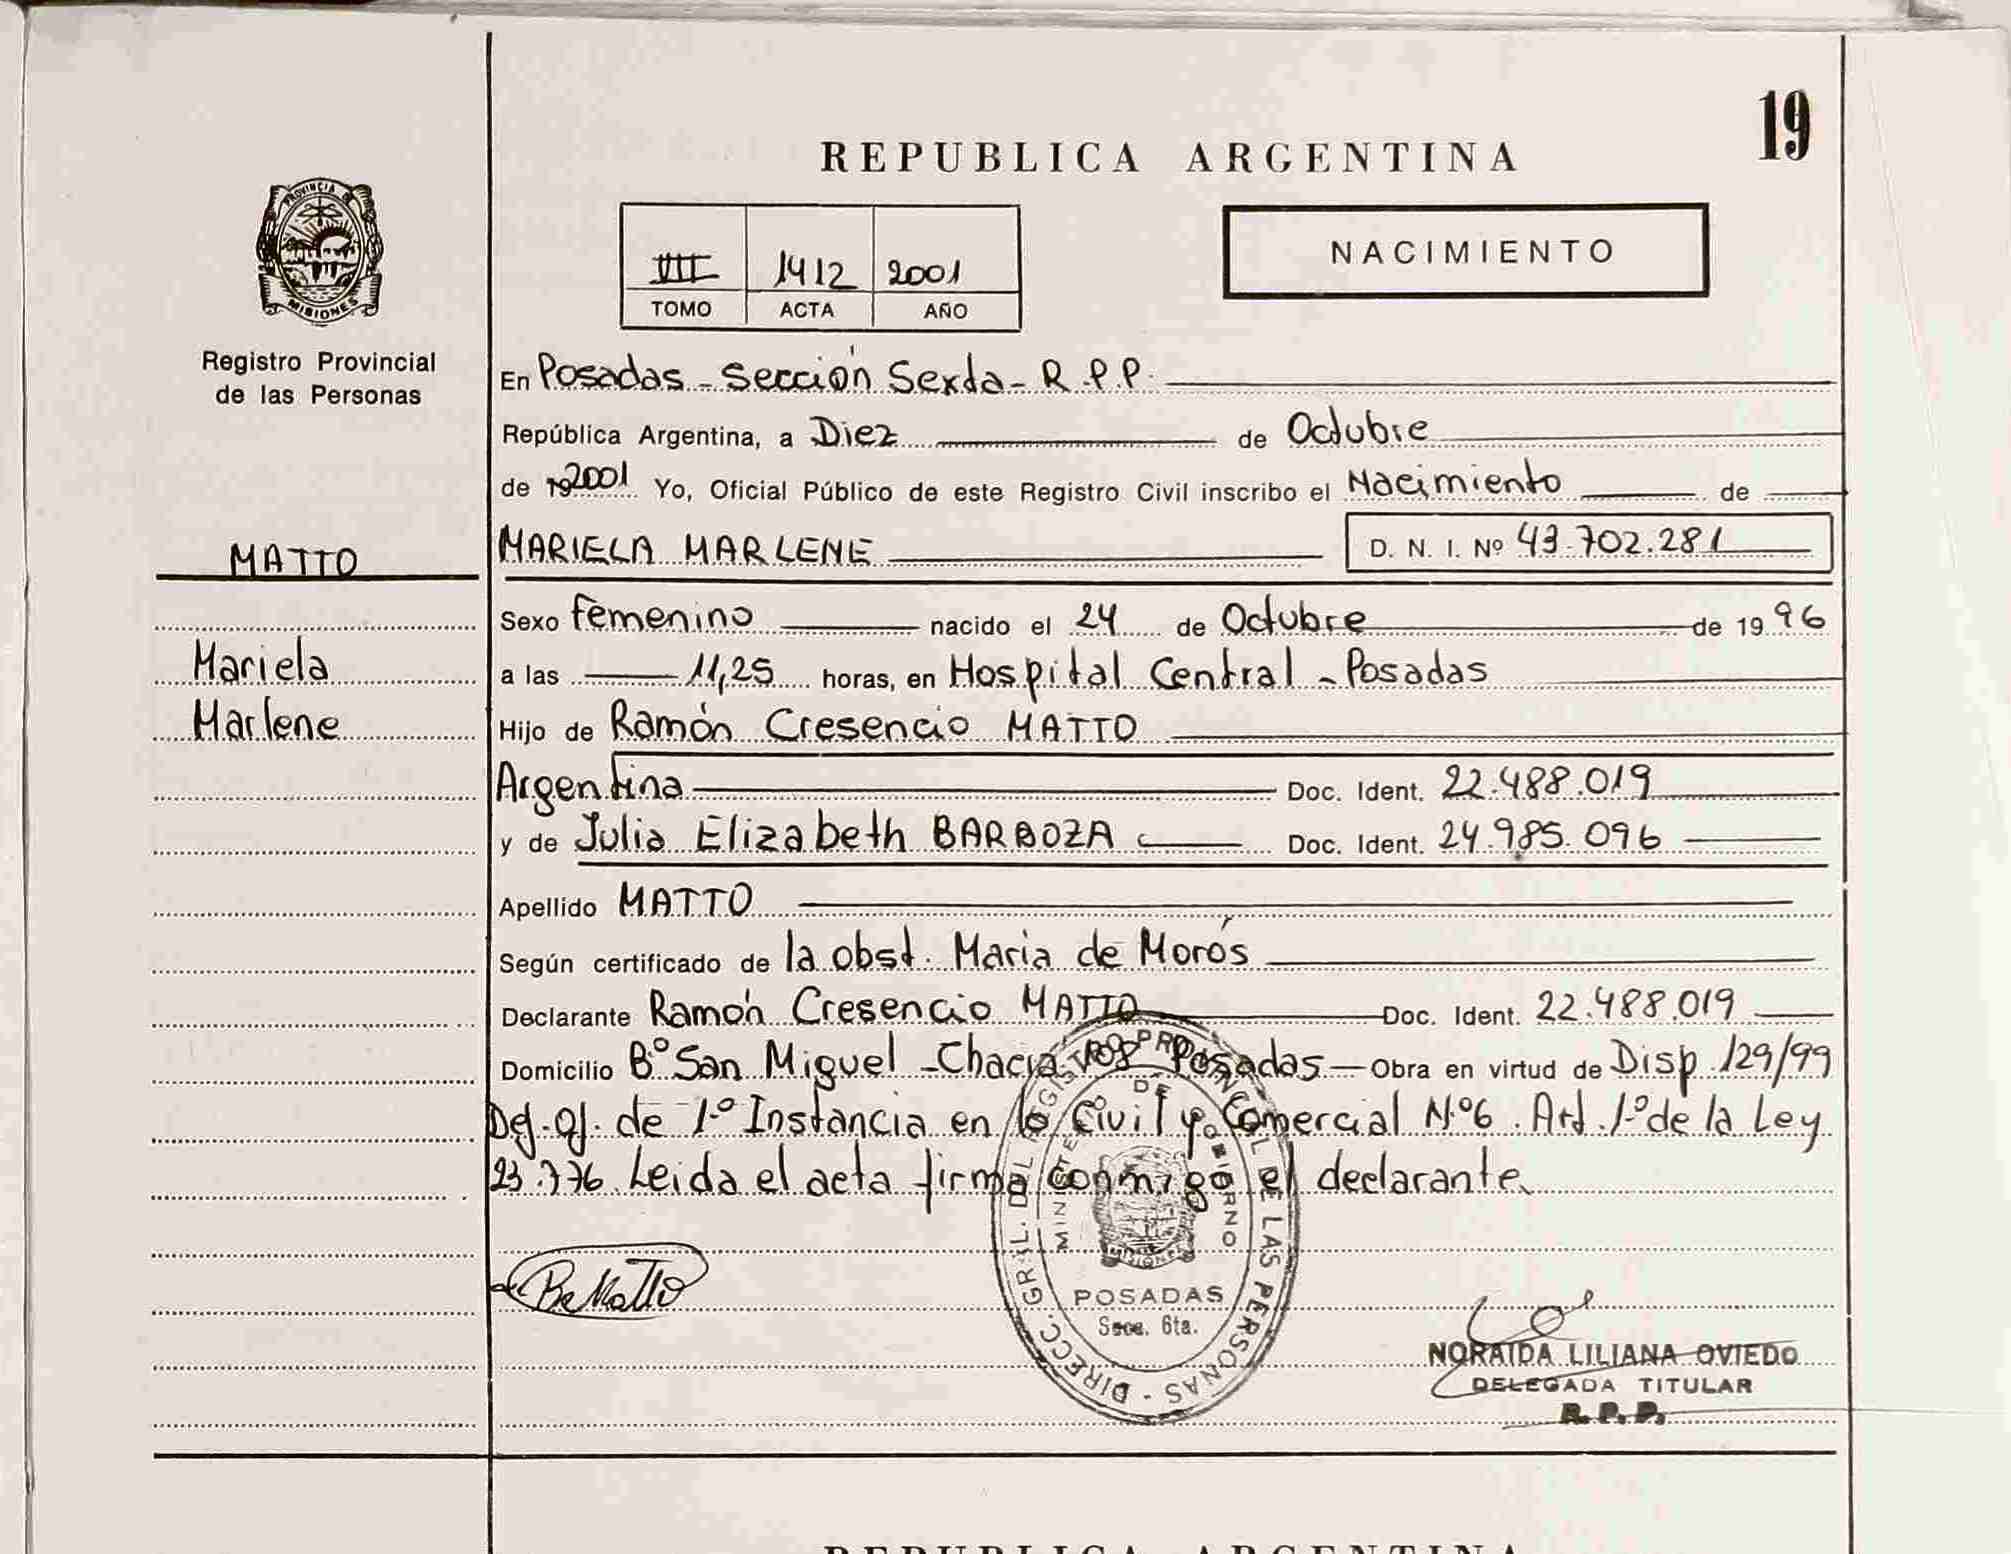 19
REPUBLICA ARGENTINA
NACIMIENTO
PROVINCIA DE
MISIONES
Registro Provincial
de las Personas
III 1412 2001
TOMO ACTA AÑO
En Posadas - Sección Sexta - R.P.P.
República Argentina, a Diez de Octubre
de 192001 Yo, Oficial Público de este Registro Civil inscribo el Nacimiento de
MATTO
MARIELA MARLENE D. N. I. Nº 43.702.281
Sexo Femenino nacido el 24 de Octubre de 1996
Mariela
a las 11,25 horas, en Hospital Central - Posadas
Marlene
Hijo de Ramón Cresencio MATTO
Argentina Doc. Ident. 22.488.019
y de Julia Elizabeth BARBOZA Doc. Ident. 24.985.096
Apellido MATTO
Según certificado de la obst. Maria de Morós
Declarante Ramón Cresencio MATTO Doc. Ident. 22.488.019
Domicilio Bº San Miguel - Posadas - Obra en virtud de Disp 129/99
de 1º Instancia en lo Civil y Comercial Nº6. Art. 1º de la Ley
23.776. Leida el acta firma conmigo el declarante.
DIRECC. GRAL. DEL REGISTRO PROVINCIAL DE LAS PERSONAS
MINISTERIO DE GOBIERNO
MISIONES
POSADAS
Secc. 6ta.
NORAIDA LILIANA OVIEDO
DELEGADA TITULAR
R. P. P.
REPUBLICA ARGENTINA